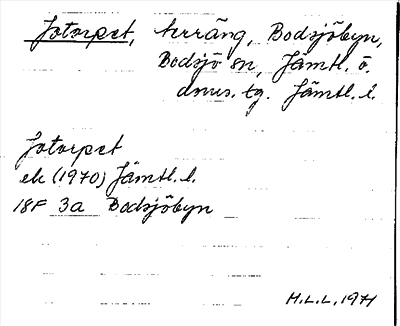 Jotorpet, terräng, Bodsjöbyn,
Bodsjö sn, Jämtl. ö.
dms. tg. Jämtl. l.
Jotorpet
ek (1970) Jämtl. l.
18F 3a Bodsjöbyn
H.L.L, 1971